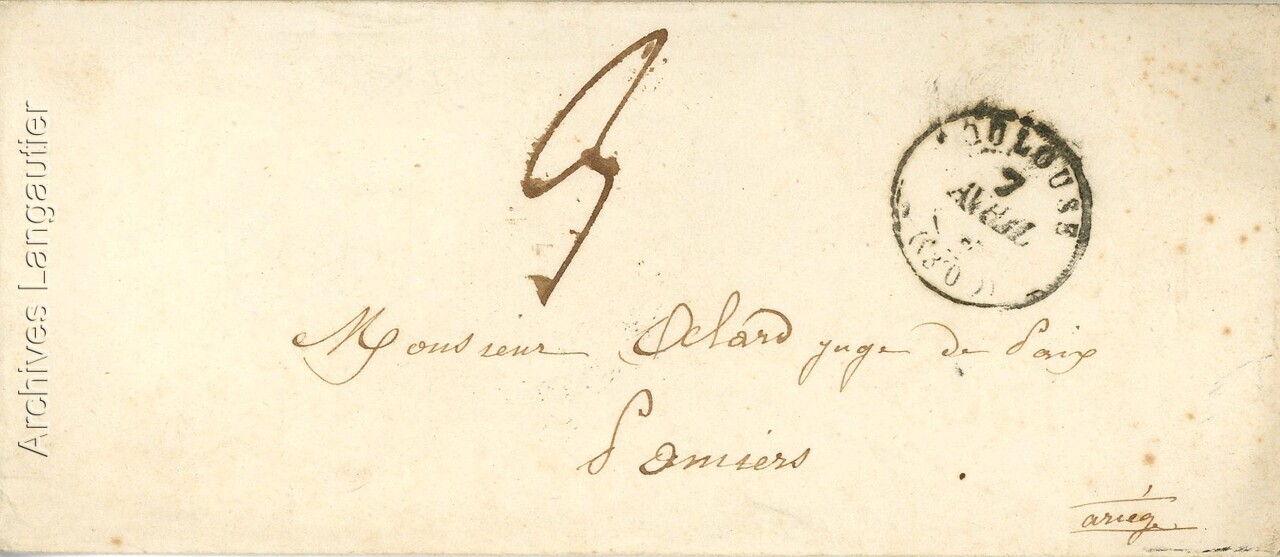 Archives Langautier
TOULOUSE
7
AVRIL
(30)
Monsieur Delard juge de Paix
Pamiers
ariég